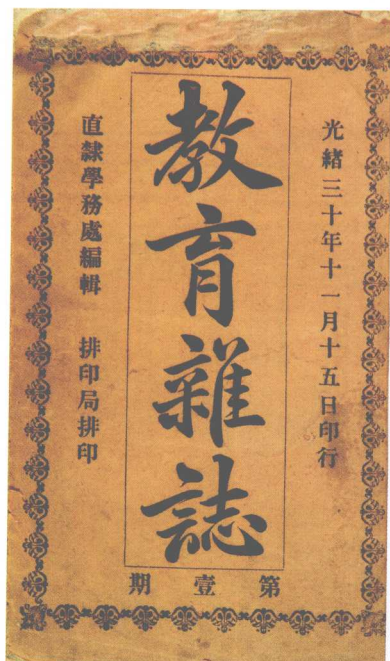 光緒三十年十一月十五日印行
教育雜誌
第壹期
直隸學務處編輯 排印局排印